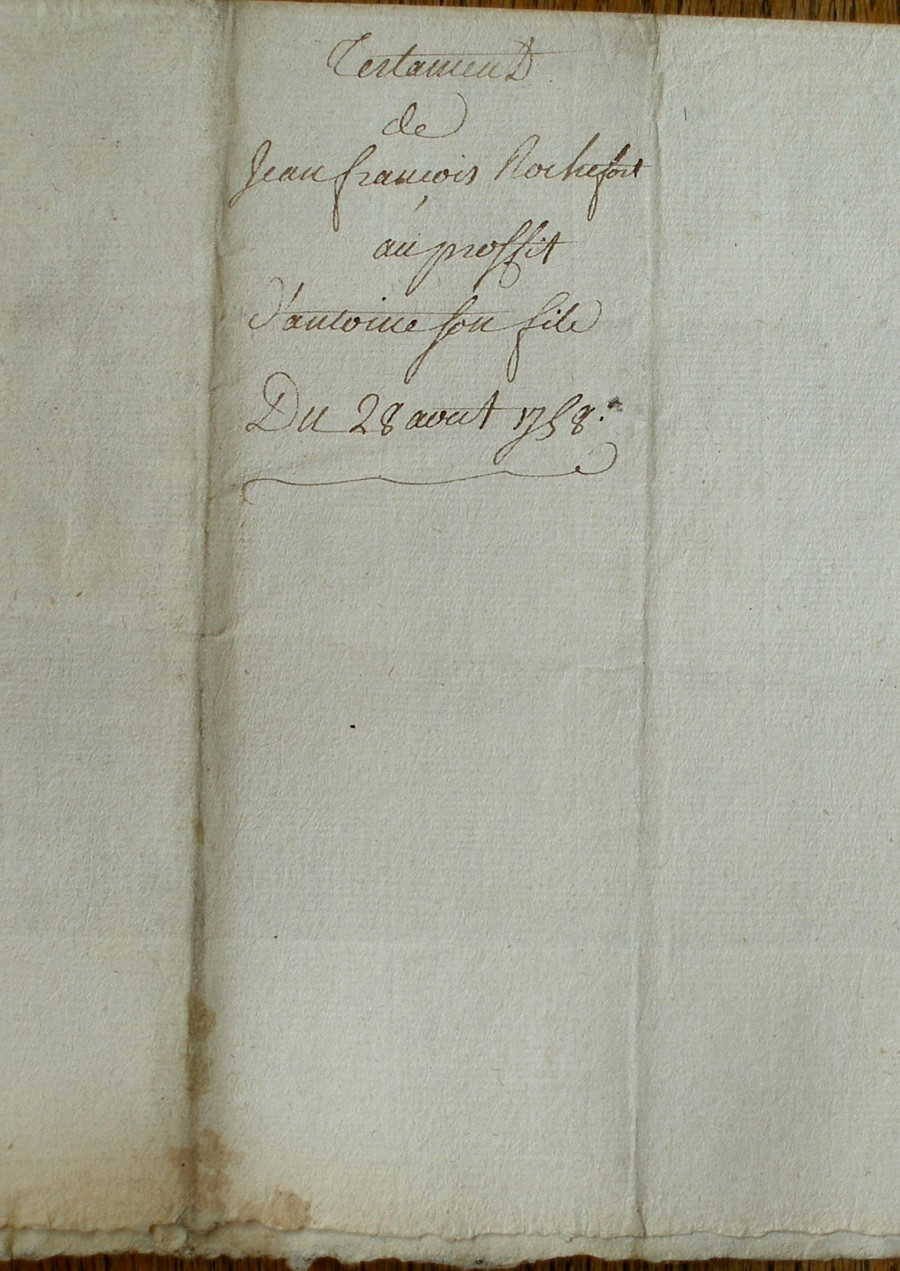 Testament
de
Jean françois Rochefort
au proffit
d'antoine son fils
Du 28 aout 1758.